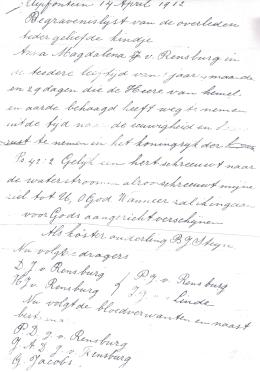 fontein 14 April 1912
Begravenislyst van de overleden
teder geliefde kindje
Anna Magdalena J v. Rensburg in
de teedere leeftyd van 1 jaar maanden
en 29 dagen die de Heere van hemel
en aarde behaagd heeft weg te nemen
uit de tyd na de eeuwigheid en
rust te nemen en het koningryk der
Ps 42:2 Gelyk een hert schreeuwt naar
de waterstroomen alzoo schreeuwt myne
ziel tot U, O God Wanneer zal ik ingaan
voor Gods aangezicht verschynen
Als koster ouderling B J Steyn
Nu volgt dragers
D. J. v. Rensburg / P. J. v. Rensburg
H J v. Rensburg J. J. v. Linde
Nu volgt de bloedverwanten en naast
P. D. J. v Rensburg
J. A. D. J. v. Rensburg
G. Jacobs